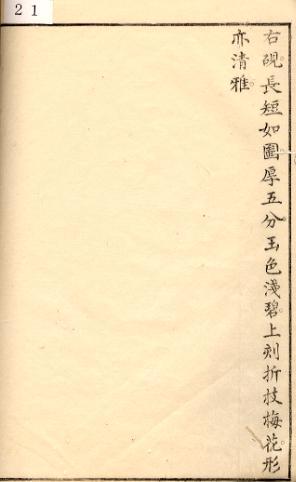 21
右硯長短如圖厚五分玉色淺碧上刻折枝梅花形
亦清雅